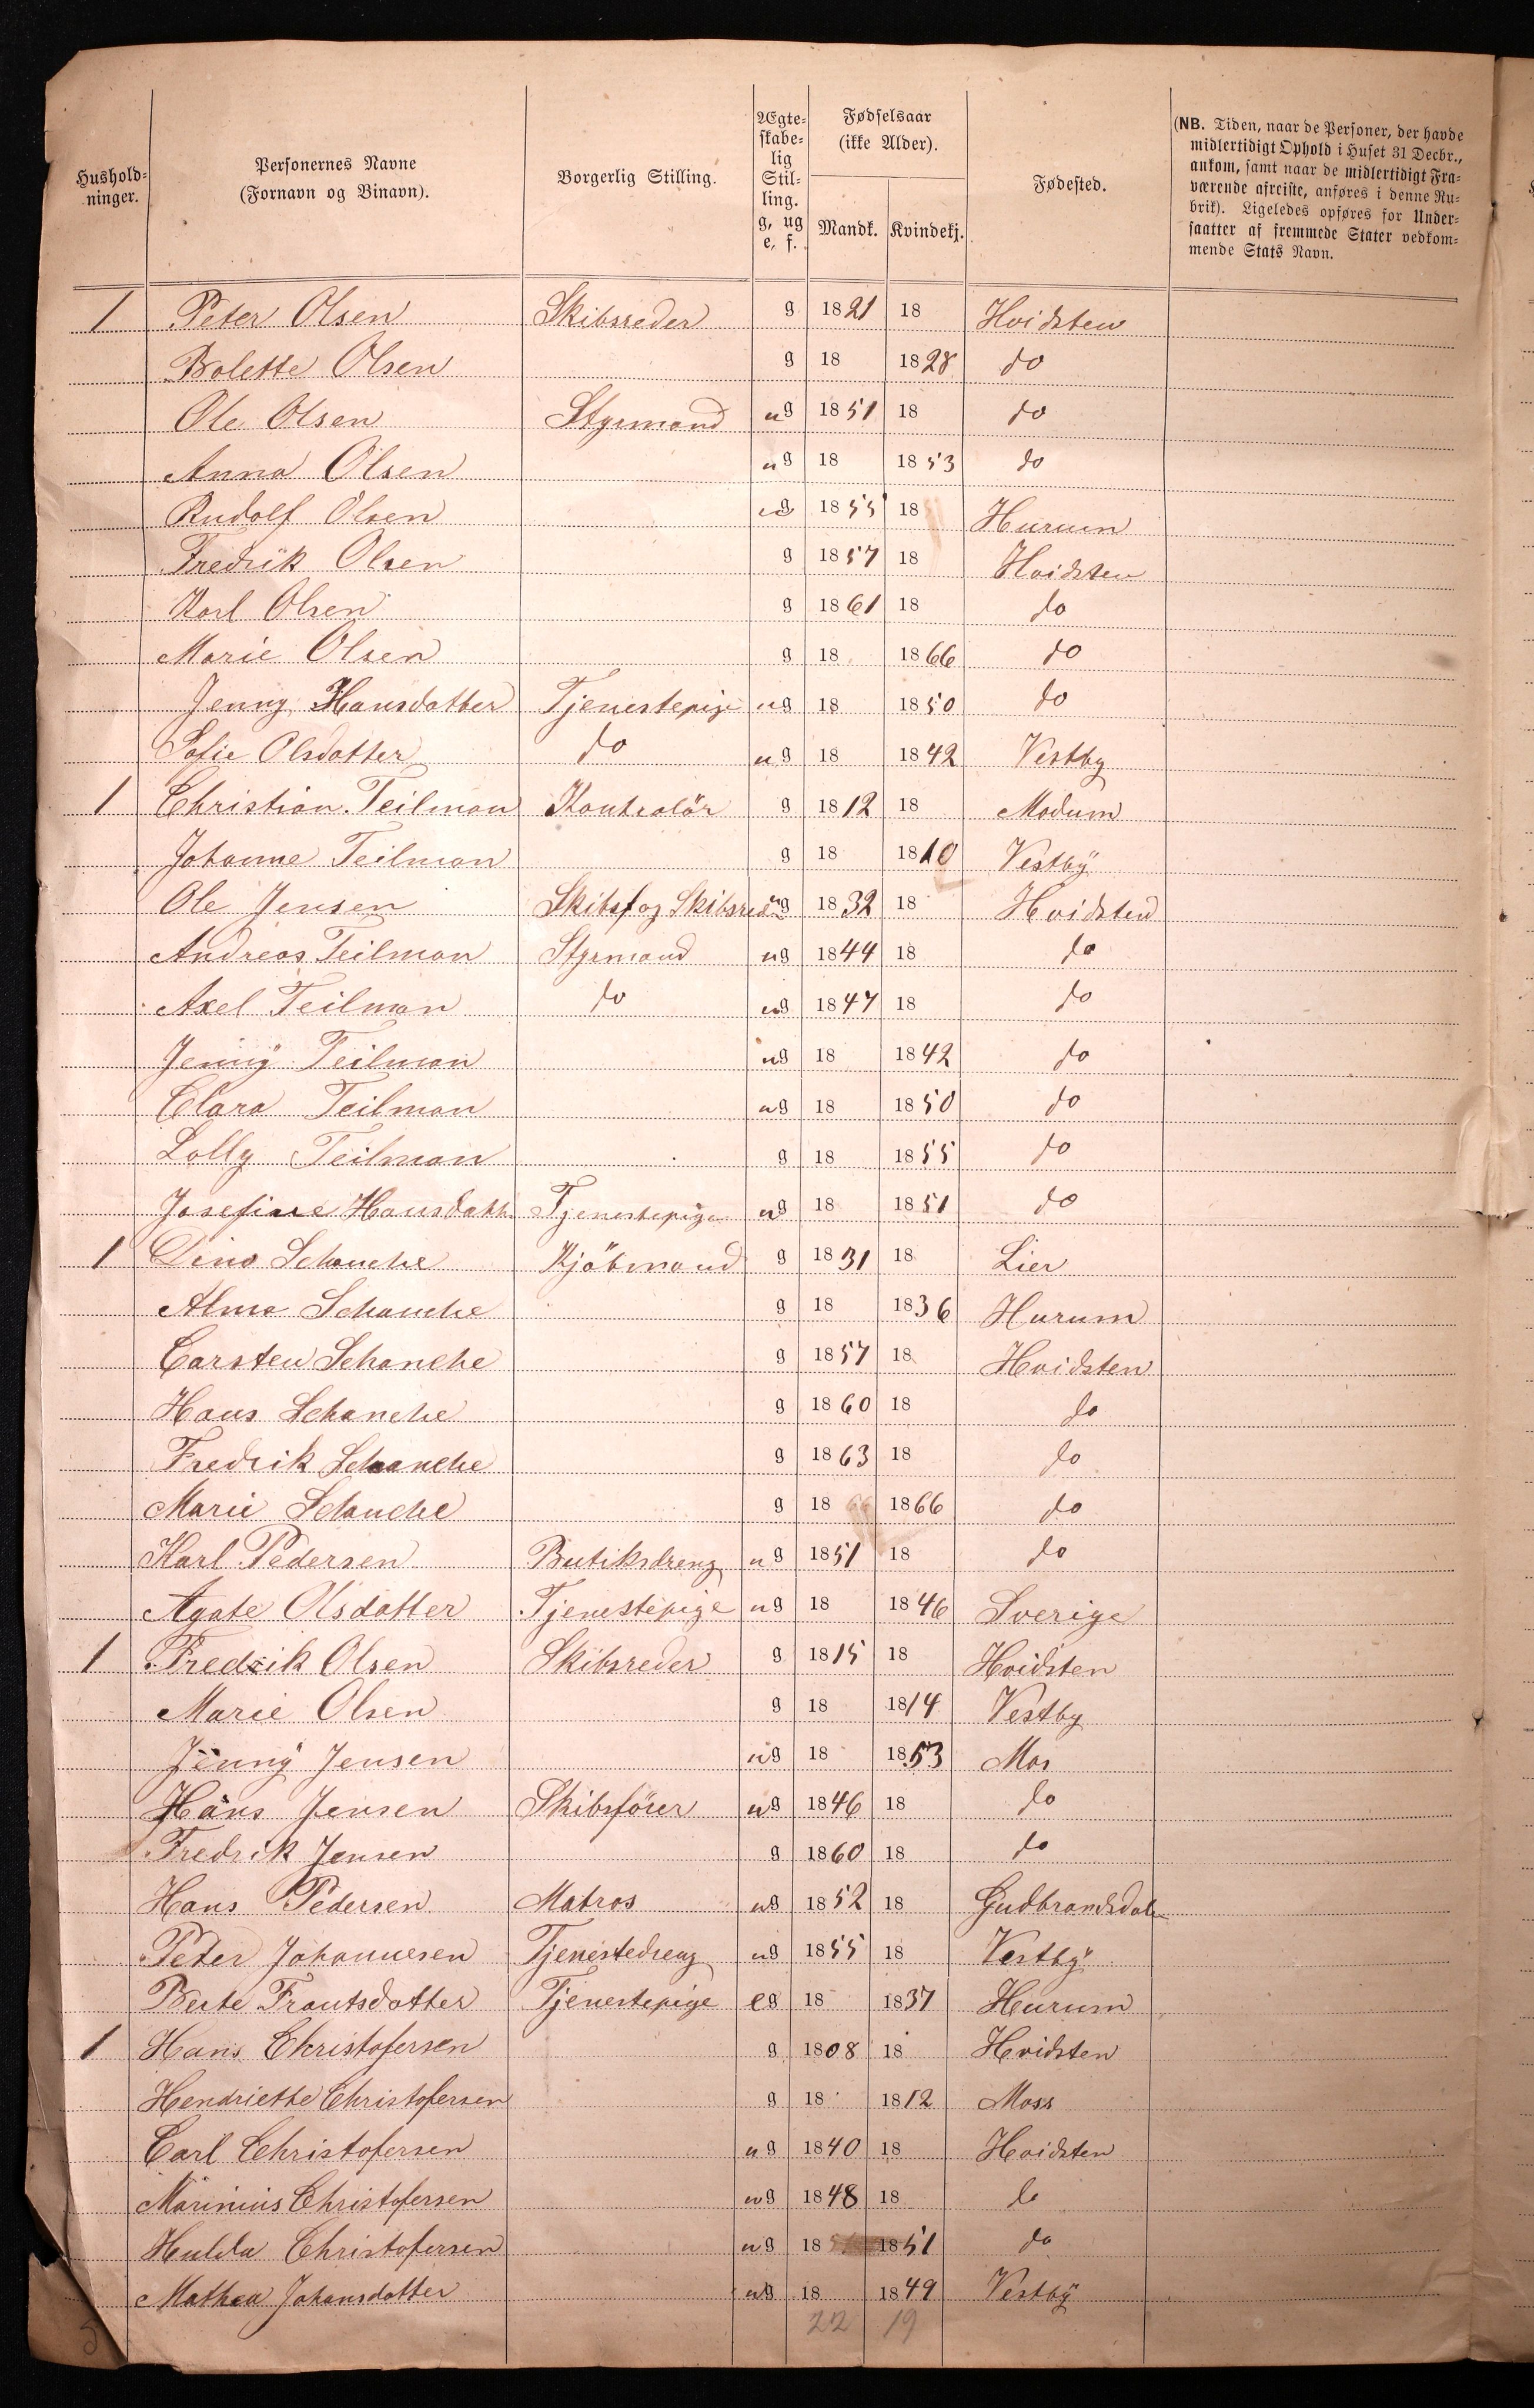 Hushold-
ninger.
Personernes Navne
(Fornavn og Binavn).
Borgerlig Stilling.
Ægte-
skabe-
lig
Stil-
ling.
g, ug
e, f.
Fødselsaar
(ikke Alder).
Mandk. Kvindekj.
Fødested.
(NB. Tiden, naar de Personer, der havde
midlertidigt Ophold i Huset 31 Decbr.,
ankom, samt naar de midlertidigt Fra-
værende afreiste, anføres i denne Ru-
brik). Ligeledes opføres for Under-
saatter af fremmede Stater vedkom-
mende Stats Navn.
1 Peter Olsen Skibsreder g 1821 18 Hvidsten
Bolette Olsen g 18 1828 do
Ole Olsen Styrmand ug 1851 18 do
Anna Olsen ug 18 1853 do
Rudolf Olsen ug 1855 18 Hurum
Fredrik Olsen g 1857 18 Hvidsten
Karl Olsen g 1861 18 do
Marie Olsen g 18 1866 do
Jenny Hansdatter Tjenestepige ug 18 1850 do
Sofie Olsdatter do ug 18 1842 Vestby
1 Christian Teilman Kontrolör g 1812 18 Modum
Johanne Teilman g 18 1810 Vestby
Ole Jensen Skibsf og Skibsred ug 1832 18 Hvidsten
Andreas Teilman Styrmand ug 1844 18 do
Axel Teilman do ug 1847 18 do
Jenny Teilman ug 18 1842 do
Clara Teilman ug 18 1850 do
Lolly Teilman g 18 1855 do
Josefine Hansdatt Tjenestepige ug 18 1851 do
1 Dino Schanche Kjöbmand g 1831 18 Lier
Alma Schanche g 18 1836 Hurum
Carsten Schanche g 1857 18 Hvidsten
Hans Schanche g 1860 18 do
Fredrik Schanche g 1863 18 do
Marie Schanche g 18 1866 do
Karl Pedersen Butiksdreng ug 1851 18 do
Agate Olsdatter Tjenestepige ug 18 1846 Sverige
1 Fredrik Olsen Skibsreder g 1815 18 Hvidsten
Marie Olsen g 18 1814 Vestby
Jenny Jensen ug 18 1853 Mos
Hans Jensen Skibsförer ug 1846 18 do
Fredrik Jensen g 1860 18 do
Hans Pedersen Matros ug 1852 18 Gudbrandsdalen
Peter Johannesen Tjenestedreng ug 1855 18 Vestby
Berte Frantsdatter Tjenestepige eg 18 1837 Hurum
1 Hans Christofersen g 1808 18 Hvidsten
Hendriette Christofersen g 18 1812 Moss
Carl Christofersen ug 1840 18 Hvidsten
Marinius Christofersen ug 1848 18 do
Hulda Christofersen ug 18 1851 do
Mathea Johansdatter ug 18 1849 Vestby
22 19
5